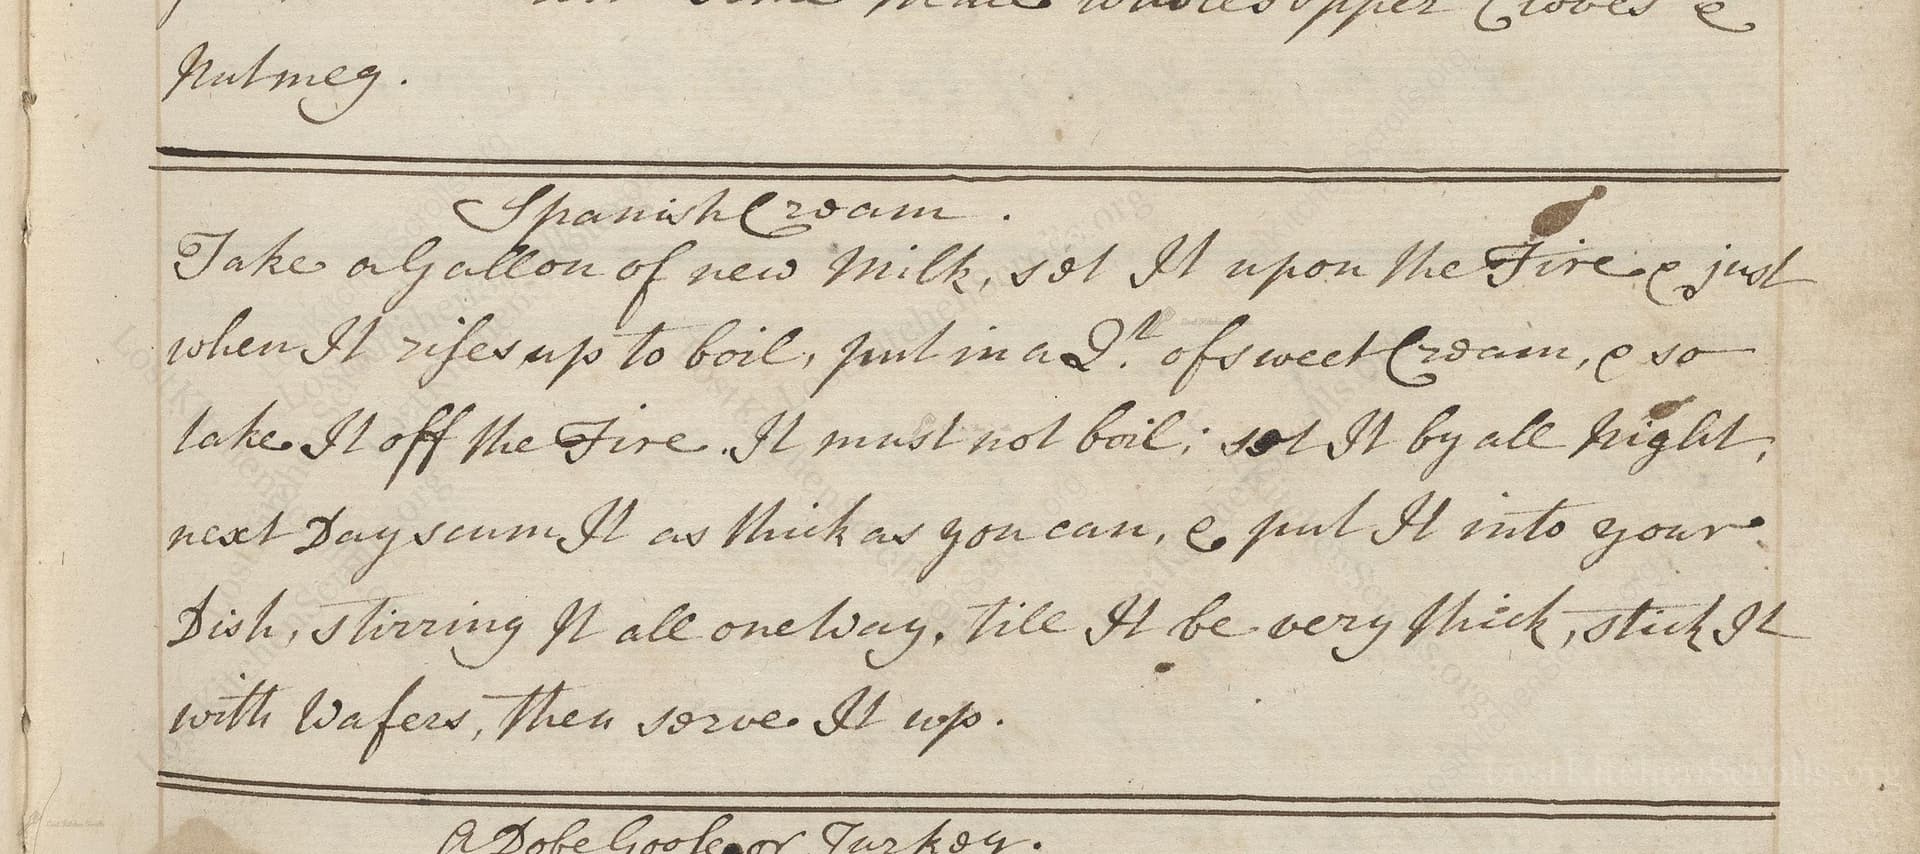 Some Mace whole Pepper Cloves &
Nutmeg.
Spanish Cream.
Take a Gallon of new Milk, set It upon the Fire & just
when It rises up to boil, put in a Qt. of sweet Cream, & so
take It off the Fire. It must not boil; set It by all Night,
next Day scum It as thick as you can, & put It into your
Dish, stirring It all one Way, till It be very thick, stick It
with Wafers, then serve It up.
A Dobe Goose or Turkey.
LostKitchenScrolls.org